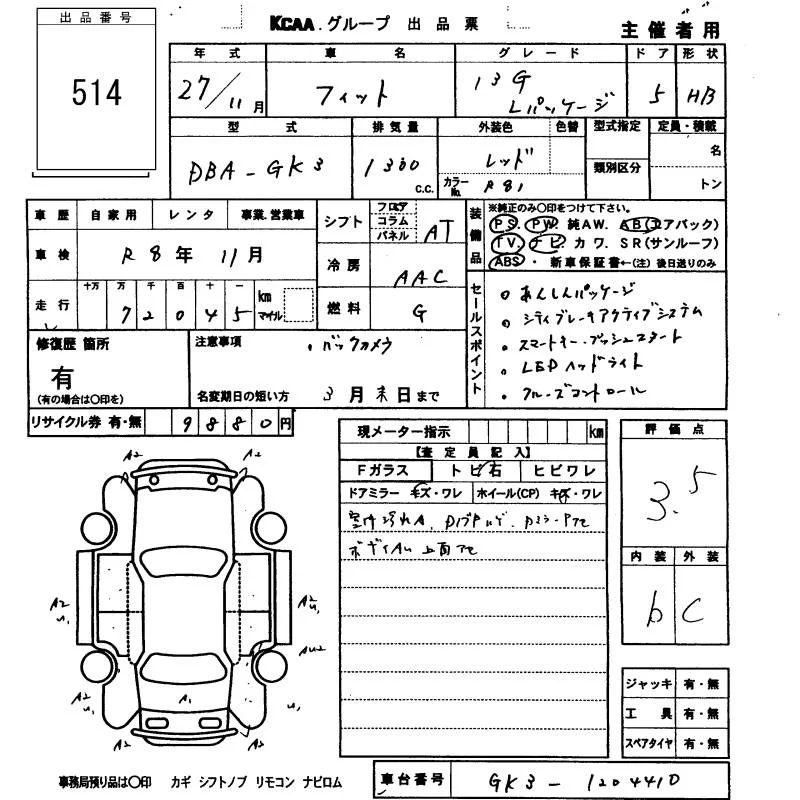 出品番号
514
KCAA.グループ 出品票
主催者用
年式 車名 グレード ドア 形状
27/11月 フィット 13G Lパッケージ 5 HB
型式 排気量 外装色 色替 型式指定 定員・積載
DBA-GK3 1300 C.C. レッド 名
カラーNo. R81 類別区分 トン
車歴 自家用 レンタ 事業.営業車
車検 R8年 11月
走行 十万 万 千 百 十 一 km マイル
7 2 0 4 5
シフト フロア コラム パネル AT
冷房 AAC
燃料 G
装備品 ※純正のみ○印をつけて下さい。
PS. PW. 純AW. AB(エアバック)
TV. ナビ. カワ. SR(サンルーフ)
ABS. 新車保証書←(注) 後日送りのみ
セールスポイント
○ あんしんパッケージ
○ シティブレーキアクティブシステム
○ スマートキー・プッシュスタート
○ LEDヘッドライト
○ クルーズコントロール
修復歴 箇所
有
(有の場合は○印を)
注意事項 ・バックカメラ
名変期日の短い方 3月末日まで
リサイクル券 有・無 9880円
現メーター指示 km
【査定員記入】
Fガラス トビ石 ヒビワレ
ドアミラー キズ・ワレ ホイール(CP) キズ・ワレ
ボディAU 上面
評価点
3.5
内装 外装
b C
A2 A2
A2 A2
U1 U1
AU2
A2 A1 A2
U1 U1
A2 A2
ジャッキ 有・無
工具 有・無
スペアタイヤ 有・無
事務局預り品は○印 カギ シフトノブ リモコン ナビロム
車台番号 GK3-1204410